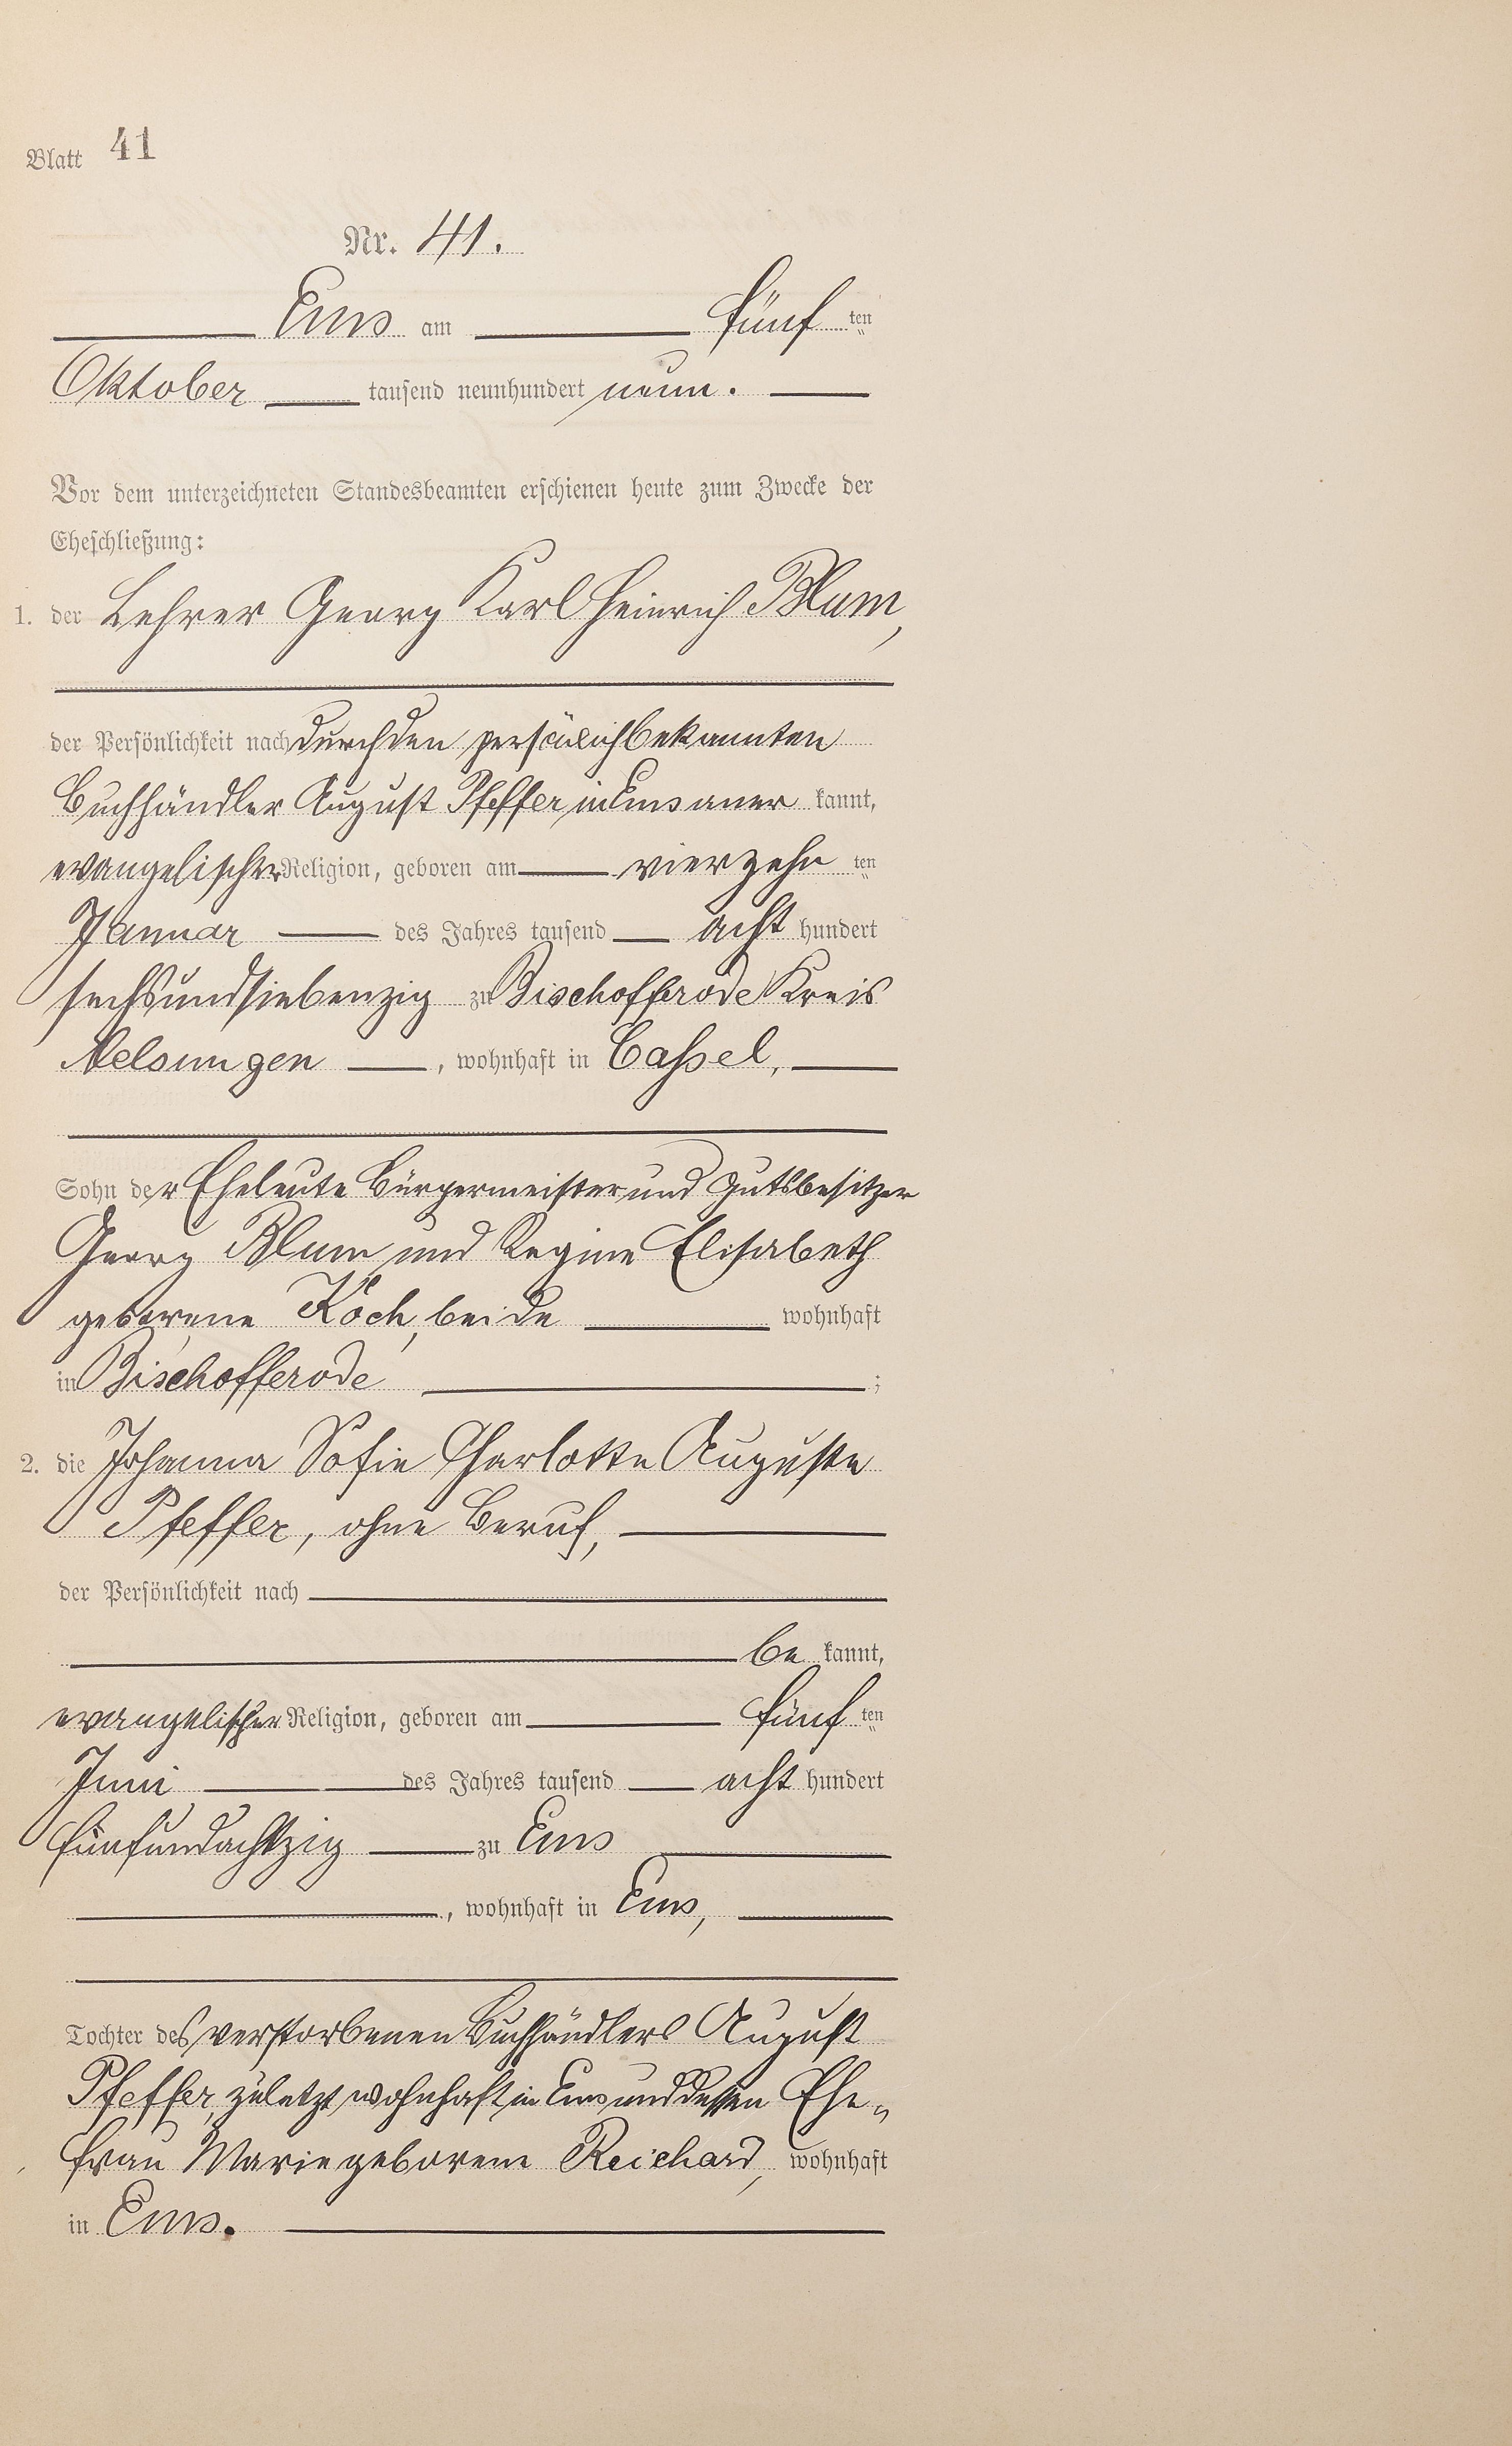 Blatt 41
Nr. 41.
Ems am fünften
Oktober tausend neunhundert neun.
Vor dem unterzeichneten Standesbeamten erschienen heute zum Zwecke der
Eheschließung:
1. der Lehrer Georg Karl Heinrich Blum,
der Persönlichkeit nach durch den persönlich bekannten
Buchhändler August Pfeffer in Ems anerkannt,
evangelischer Religion, geboren am vierzehnten
Januar des Jahres tausend acht hundert
sechsundsiebenzig zu Bischofferode Kreis
Melsungen, wohnhaft in Cassel,
Sohn der Eheleute Bürgermeister und Gutsbesitzer
Georg Blum und Regine Elisabeth
geborene Koch, beide wohnhaft
in Bischofferode;
2. die Johanna Sofie Charlotte Auguste
Pfeffer, ohne Beruf,
der Persönlichkeit nach
bekannt,
evangelischer Religion, geboren am fünften
Juni des Jahres tausend acht hundert
fünfundachtzig zu Ems
, wohnhaft in Ems,
Tochter des verstorbenen Buchhändlers August
Pfeffer, zuletzt wohnhaft in Ems und dessen Ehe-
frau Marie geborene Reichard, wohnhaft
in Ems.